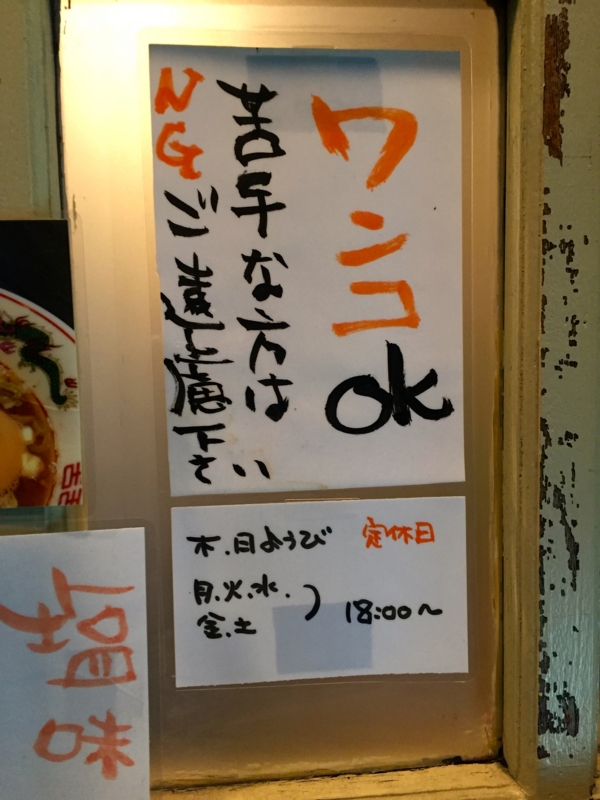 ワンコok
苦手な方は
NGご遠慮下さい
木.日ようび 定休日
月.火.水.
金.土
) 18:00〜